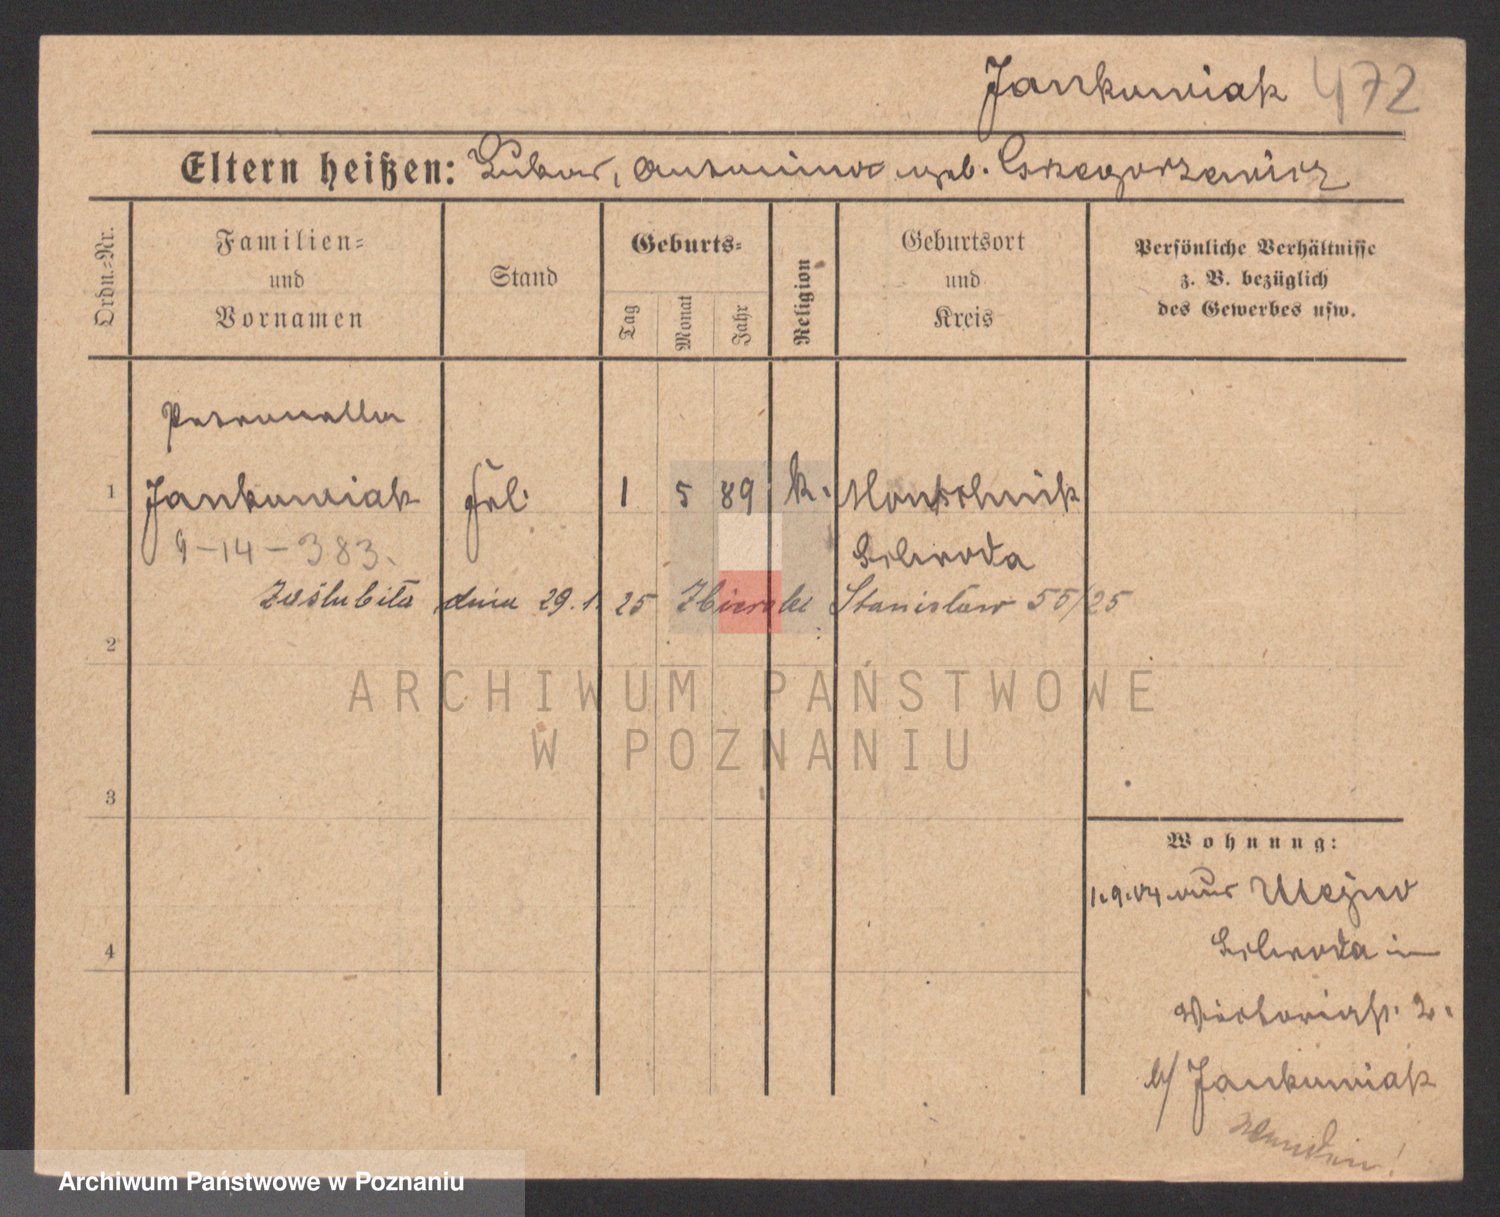 Jankowiak 472
Eltern heißen: Lukas, Antonina geb. Grzegorzewicz
Ordn.=Nr.
Familien=
und
Vornamen
Stand
Geburts=
Tag
Monat
Jahr
Religion
Geburtsort
und
Kreis
Persönliche Verhältnisse
z. B. bezüglich
des Gewerbes usw.
Petronella
1 Jankowiak Frl. 1 5 89 k.
9-14-383. Schroda
zaślubiła dnia 29.1.25 Stanisław 55/25
2
ARCHIWUM PAŃSTWOWE
W POZNANIU
3
Wohnung:
1.9.04 aus
4 Schroda in
Victoriastr. 2.
b/ Jankowiak
Archiwum Państwowe w Poznaniu